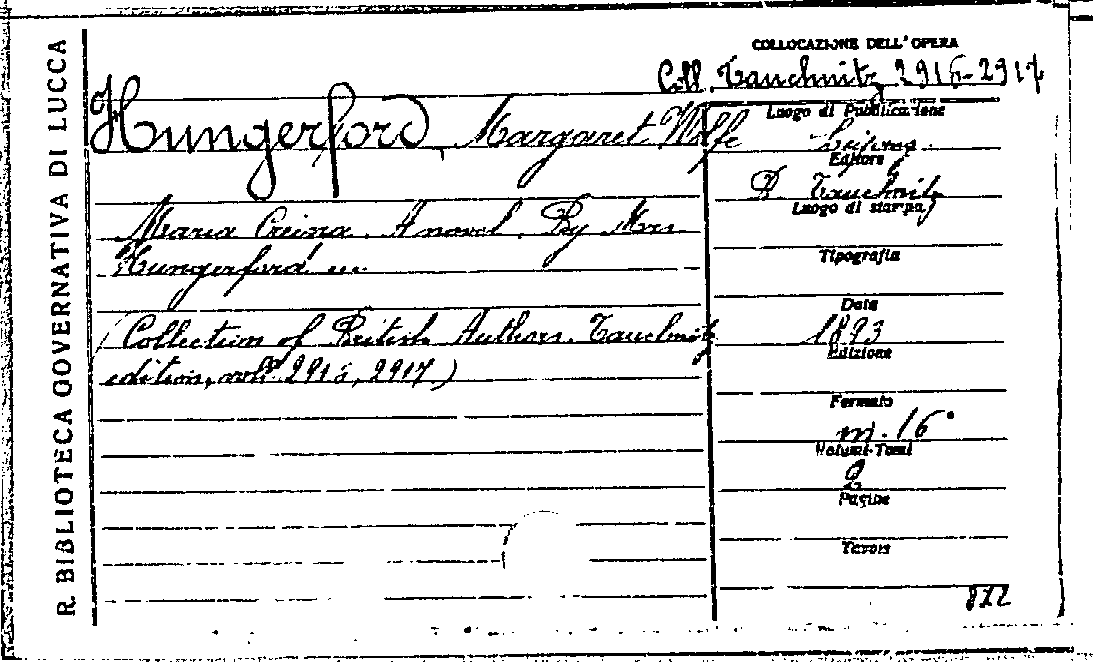 R. BIBLIOTECA GOVERNATIVA DI LUCCA
COLLOCAZIONE DELL'OPERA
Coll. Tauchnitz 2916-2917
Hungerford, Margaret Wolfe
Maria Creina. A novel. By Mrs
Hungerford ...
(Collection of British Authors. Tauchnitz
edition, voll. 2916, 2917)
Luogo di Pubblicazione
Leipzig
Editore
B. Tauchnitz
Luogo di stampa
Tipografia
Data
1893
Edizione
Formato
in. 16°
Volumi-Tomi
2
Pagine
Tavole